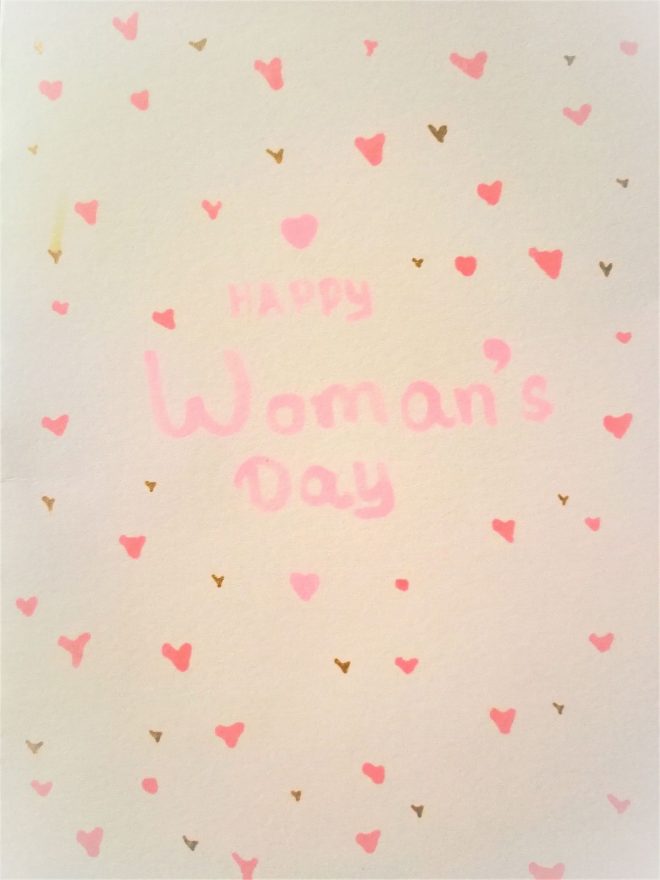 HAPPY
Woman's
Day